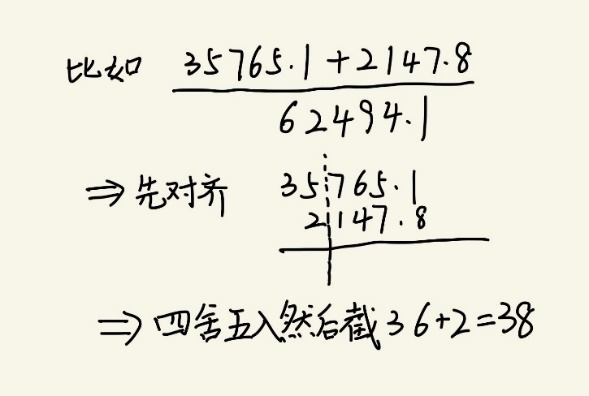 比如 35765.1+2147.8
62494.1
⇒先对齐 35765.1
2147.8
⇒四舍五入然后截36+2=38